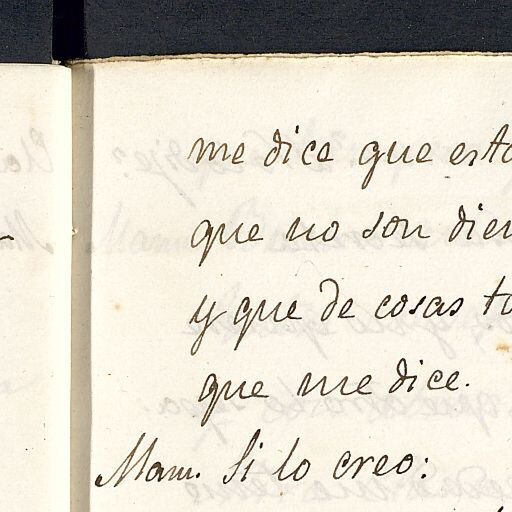 me dice que esto
que no son dien
y que de cosas to
que me dice.
Mam. Si lo creo: